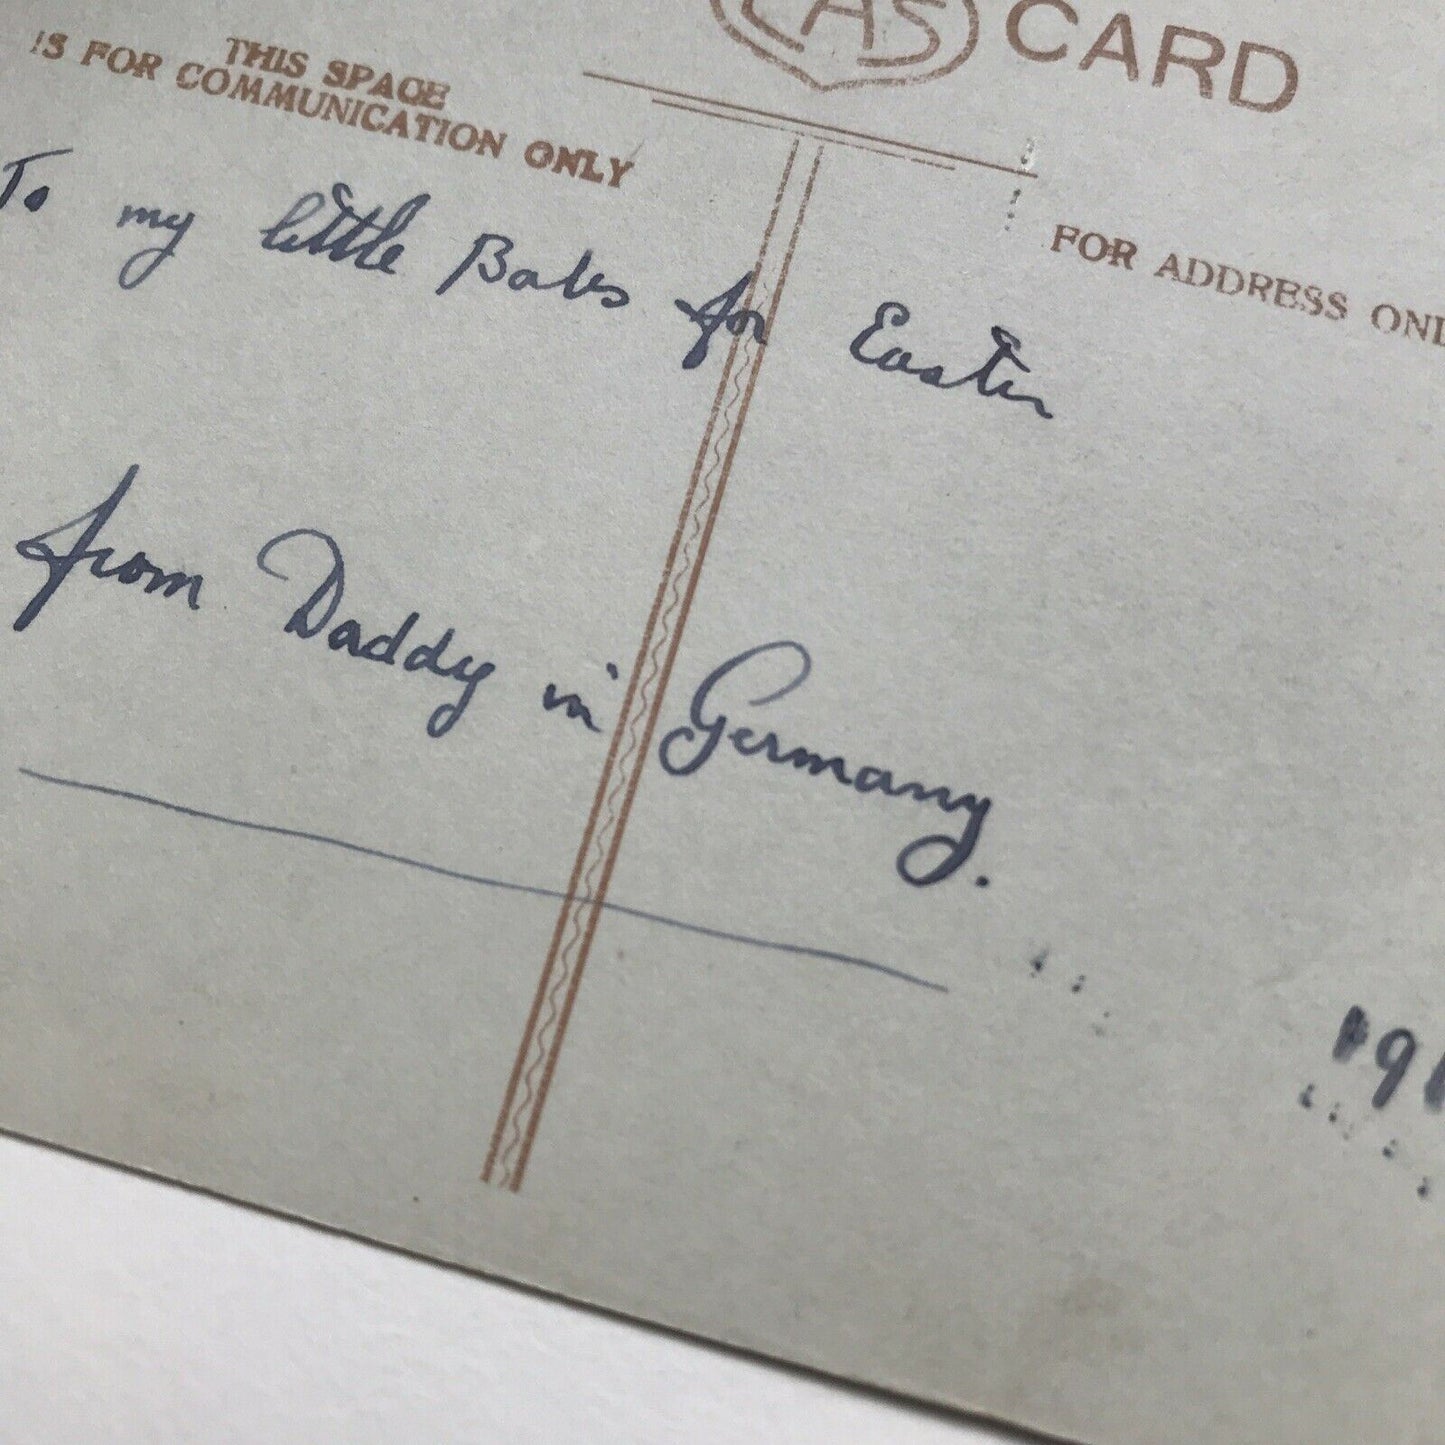 CARD
THIS SPACE
IS FOR COMMUNICATION ONLY
FOR ADDRESS ONL
To my little Babs for Easter
from Daddy in Germany.